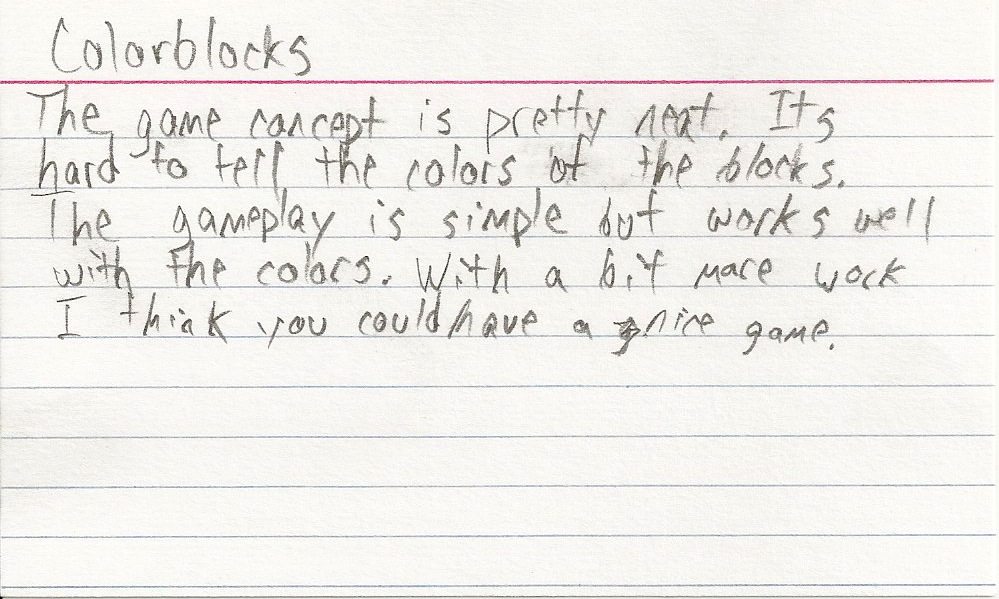 Colorblocks
The game concept is pretty neat. Its
hard to tell the colors of the blocks.
The gameplay is simple but works well
with the colors. With a bit more work
I think you could have a nice game.